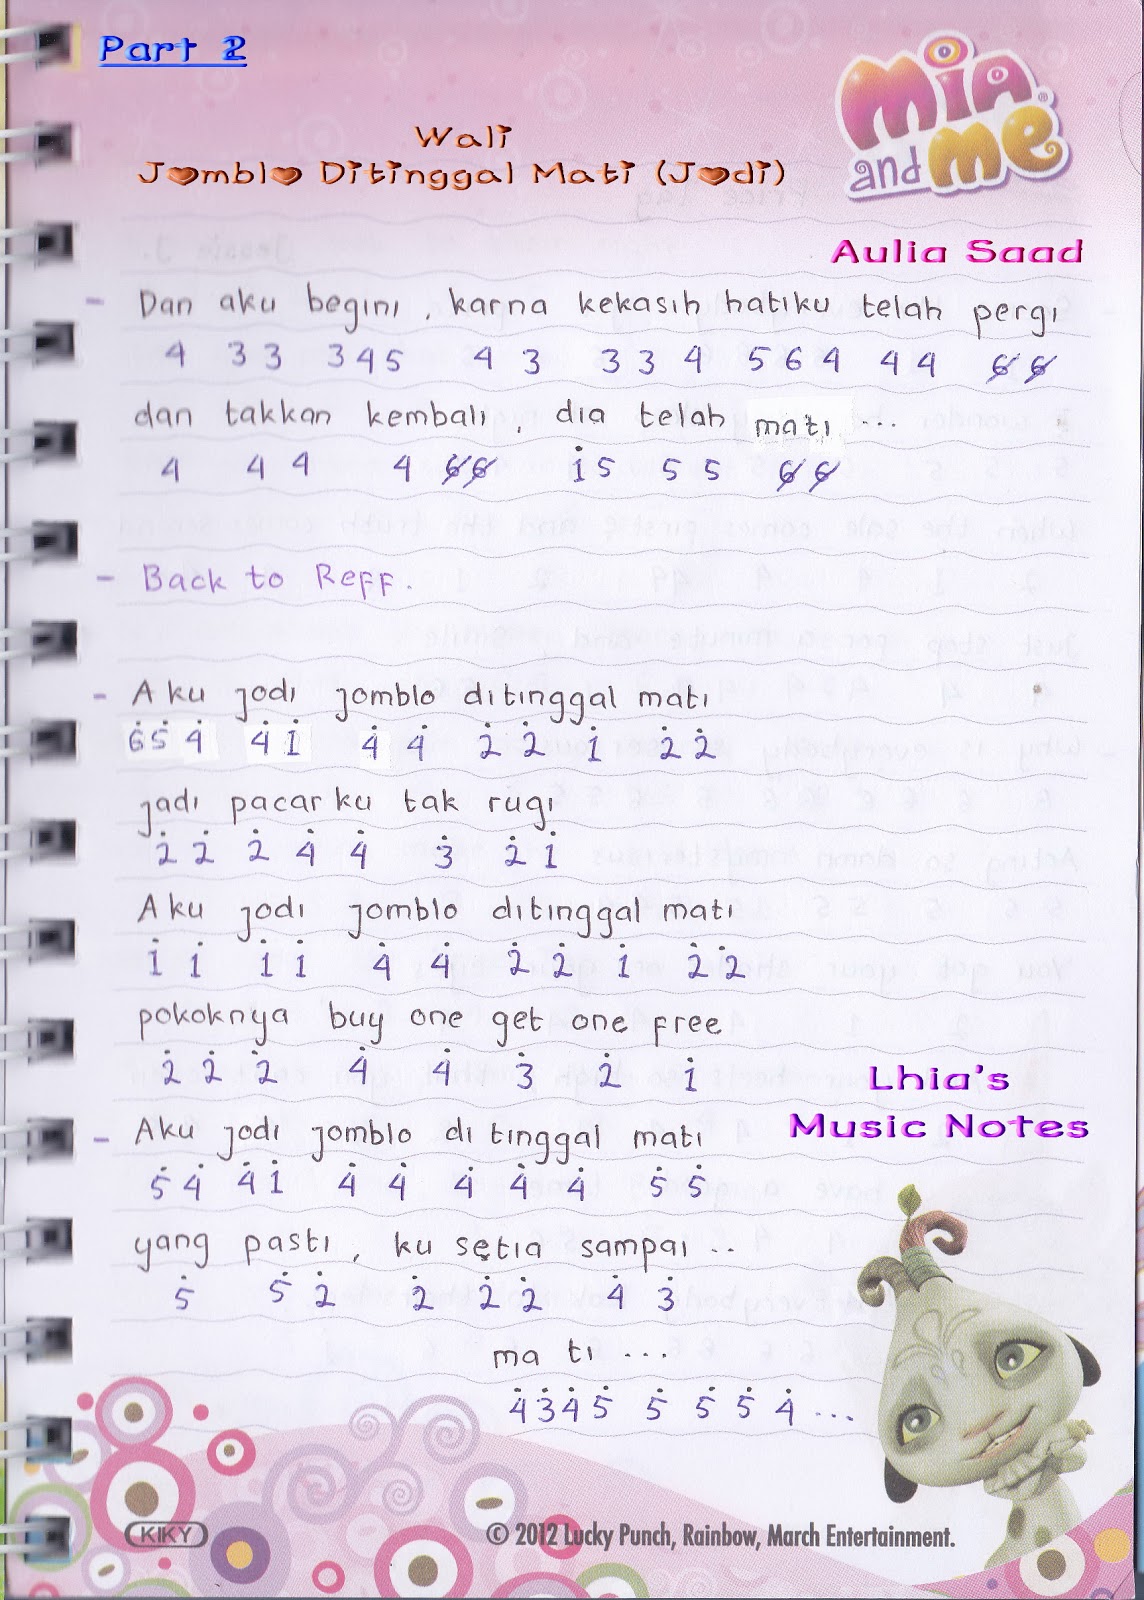 Part 2
Wali
Jomblo Ditinggal Mati (Jodi)
Mia and me
Aulia Saad
- Dan aku begini, karna kekasih hatiku telah pergi
4 3 3 3 4 5 4 3 3 3 4 5 6 4 4 4 6̸ 6̸
dan takkan kembali, dia telah mati ...
4 4 4 4 6̸ 6̸ 1̇ 5 5 5 6̸ 6̸
- Back to Reff.
- Aku jodi jomblo ditinggal mati
6̇ 5̇ 4̇ 4̇ 1̇ 4̇ 4̇ 2̇ 2̇ 1̇ 2̇ 2̇
jadi pacarku tak rugi
2̇ 2̇ 2̇ 4̇ 4̇ 3̇ 2̇ 1̇
Aku jodi jomblo ditinggal mati
1̇ 1̇ 1̇ 1̇ 4̇ 4̇ 2̇ 2̇ 1̇ 2̇ 2̇
pokoknya buy one get one free
2̇ 2̇ 2̇ 4̇ 4̇ 3̇ 2̇ 1̇
Lhia's
Music Notes
- Aku jodi jomblo di tinggal mati
5̇ 4̇ 4̇ 1̇ 4̇ 4̇ 4̇ 4̇ 4̇ 5̇ 5̇
yang pasti, ku setia sampai ..
5̇ 5̇ 2̇ 2̇ 2̇ 2̇ 4̇ 3̇
ma ti ...
4̇ 3̇ 4̇ 5̇ 5̇ 5̇ 5̇ 4̇ ...
KIKY
© 2012 Lucky Punch, Rainbow, March Entertainment.